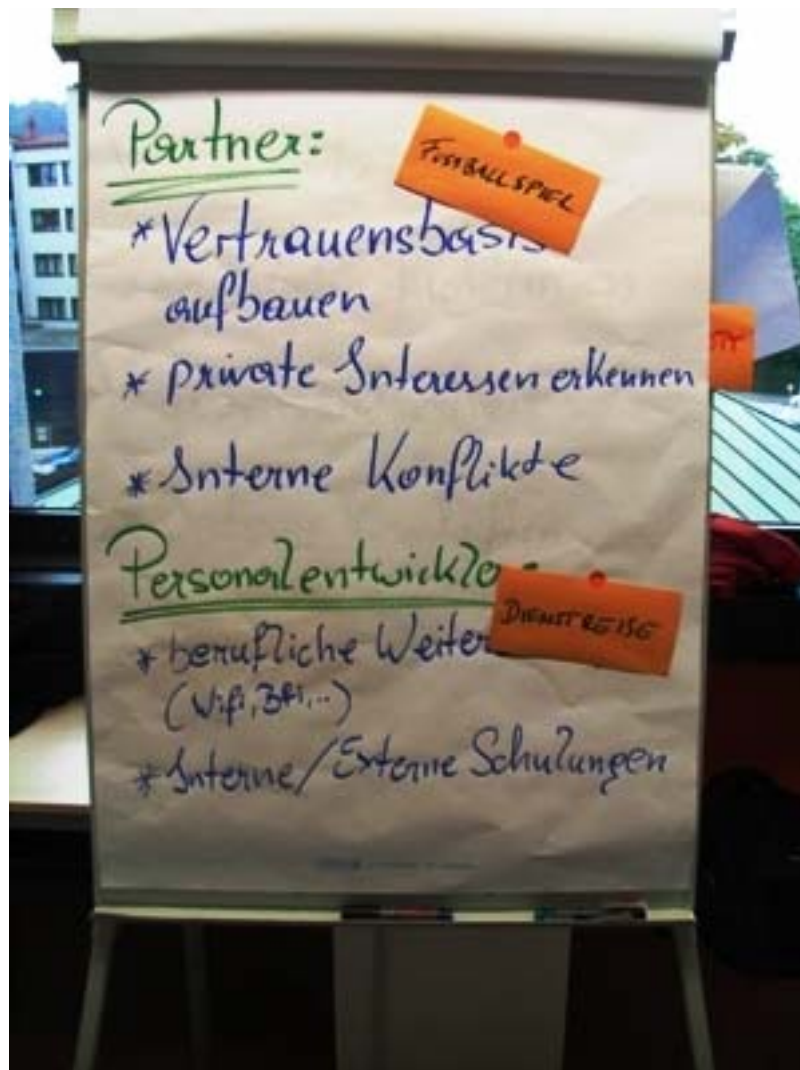 Partner:
FUSSBALLSPIEL
* Vertrauensbasis
aufbauen
* private Interessen erkennen
* Interne Konflikte
Personalentwickle
DIENSTREISE
* berufliche Weiter
(Wifi, Bfi,..)
* Interne/Externe Schulungen